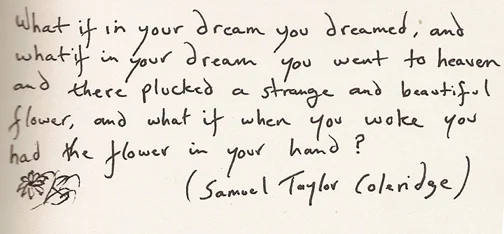 What if in your dream you dreamed, and
what if in your dream you went to heaven
and there plucked a strange and beautiful
flower, and what if when you woke you
had the flower in your hand?
(Samuel Taylor Coleridge)